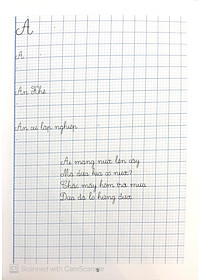 A
A
An Khê
An cư lập nghiệp
Ai mang nước lên cây
Mà dừa kia có nước?
Chắc mấy hôm trời mưa
Dừa đã lo hứng được
Scanned with CamScanner